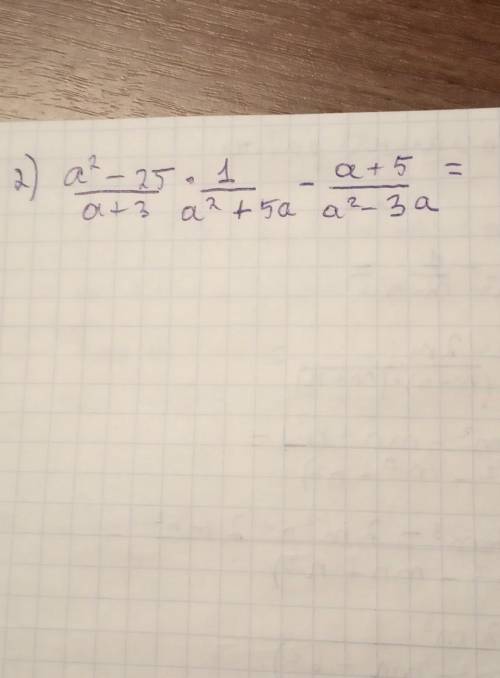 2) (a² - 25)/(a + 3) · 1/(a² + 5a) - (a + 5)/(a² - 3a) =